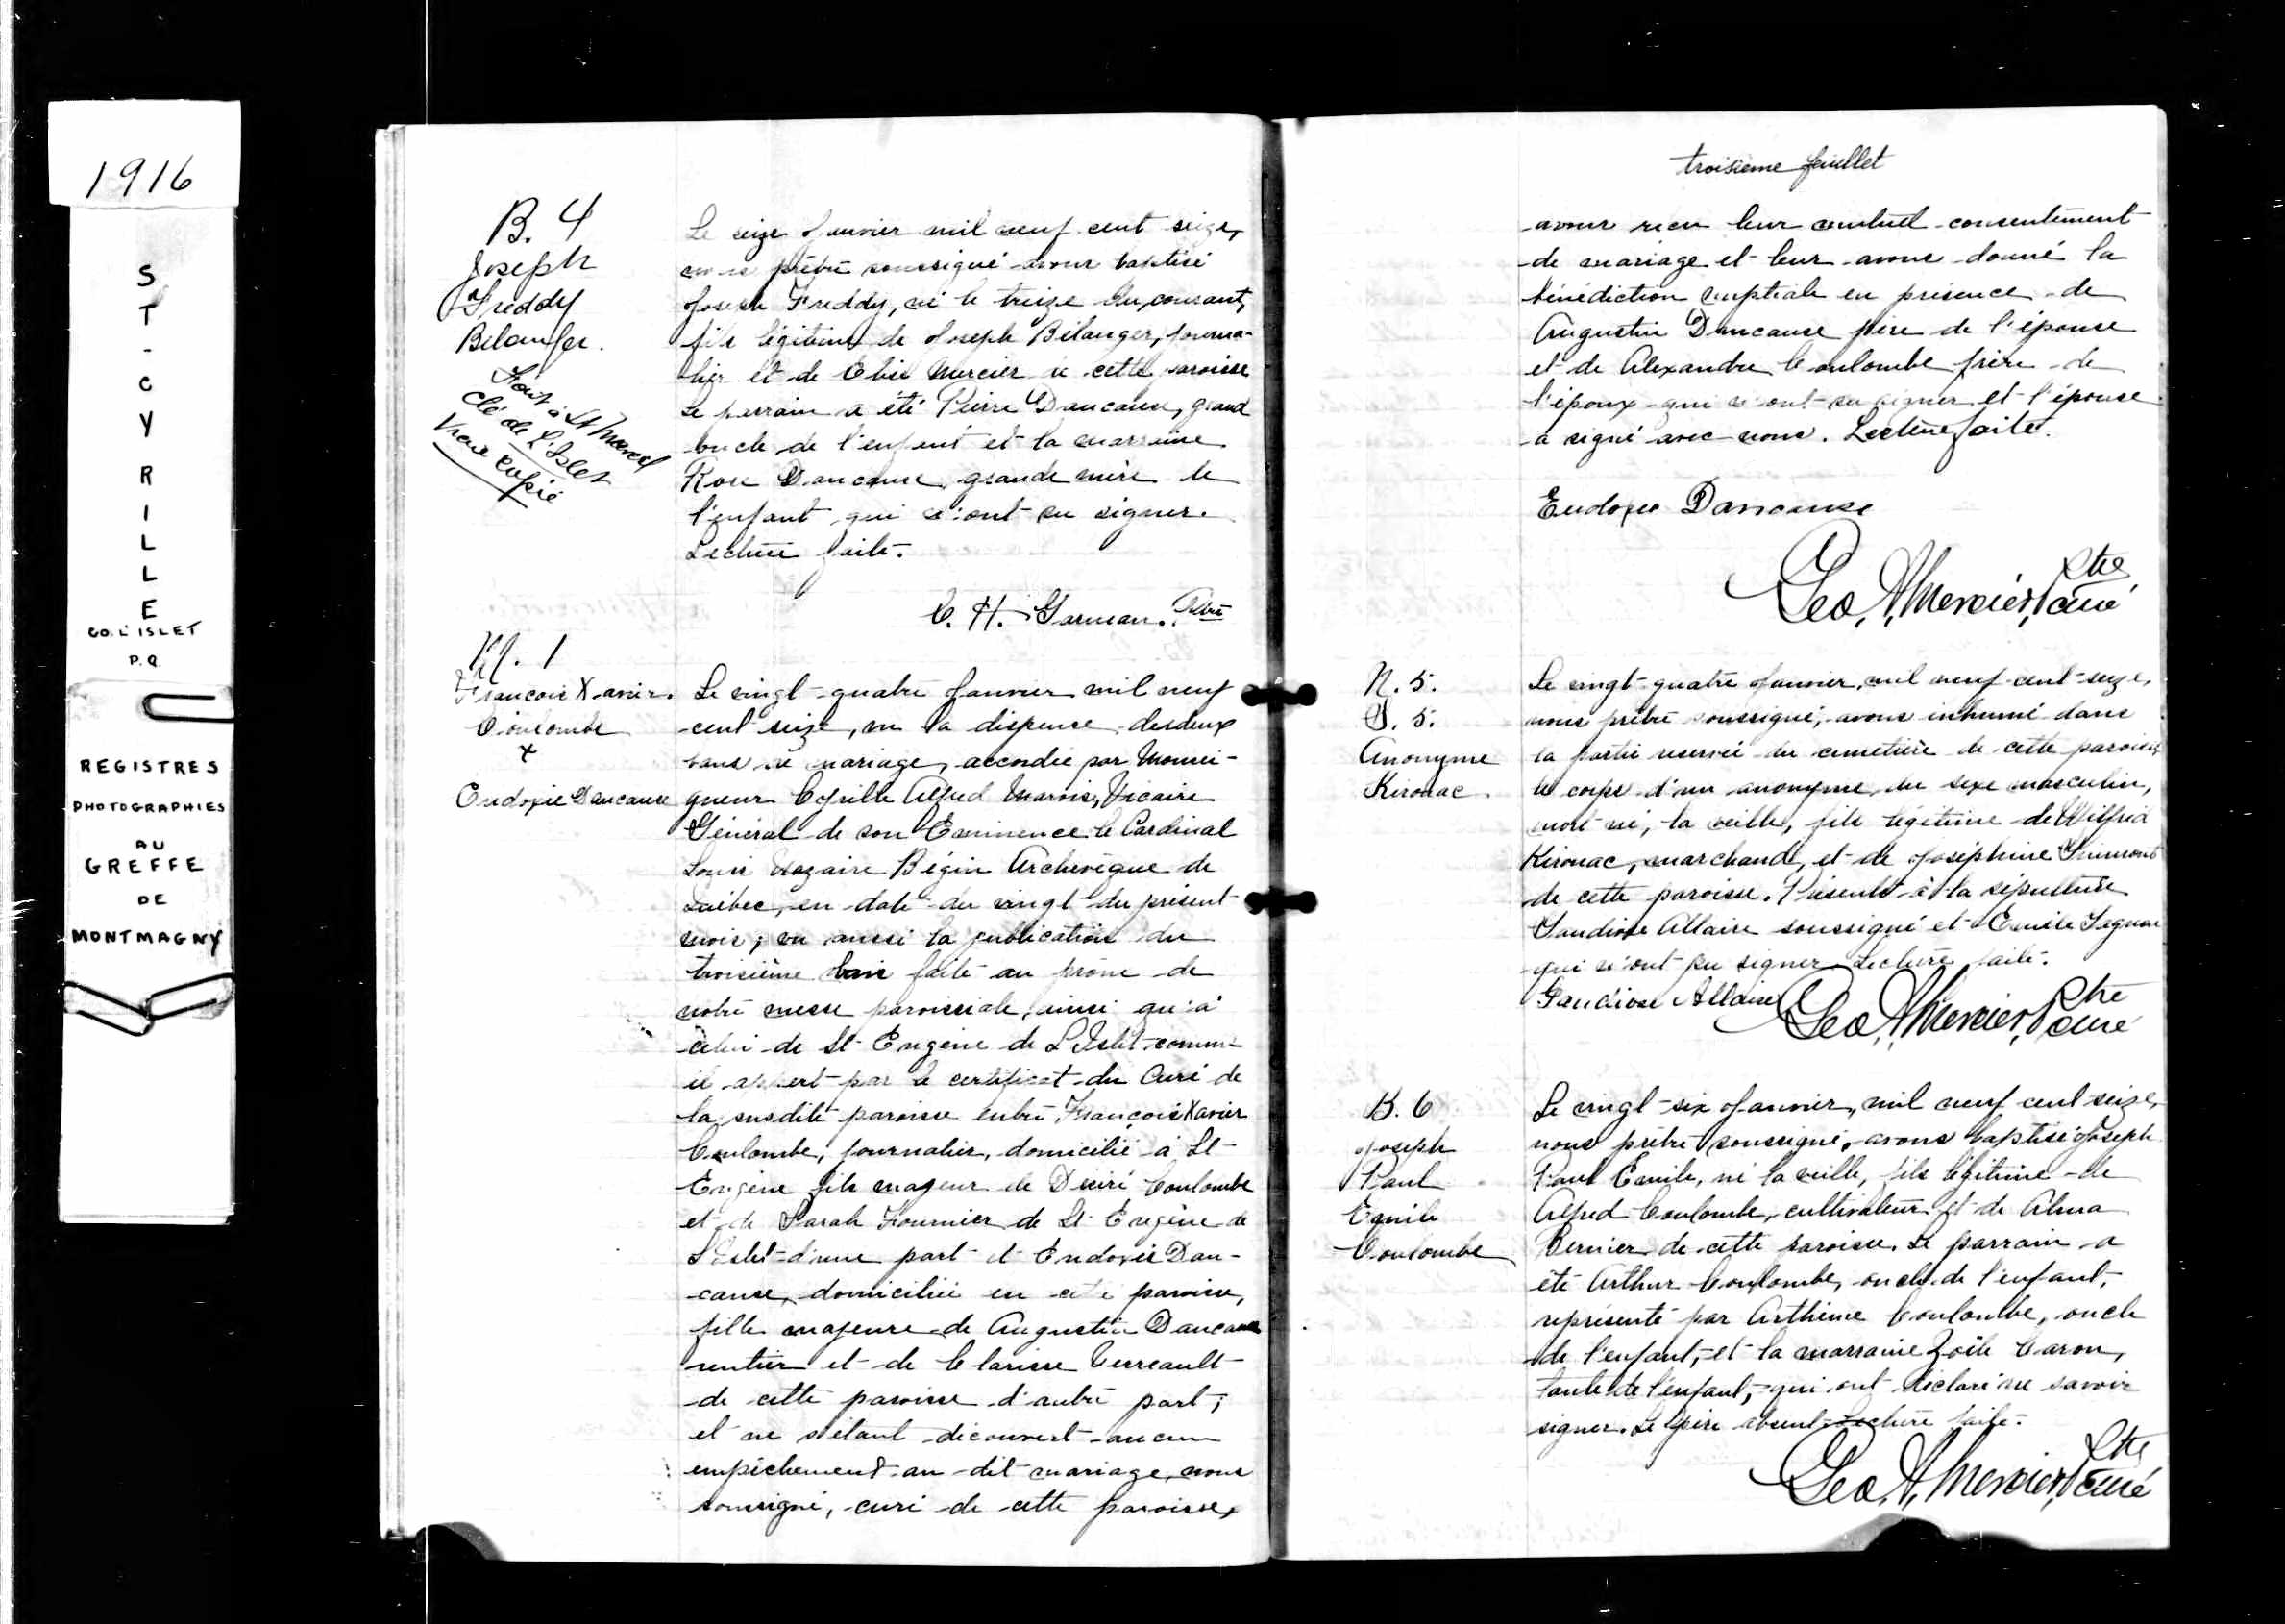 1916
ST-CYRILLE
CO. L'ISLET
P.Q.
REGISTRES
PHOTOGRAPHIES
AU
GREFFE
DE
MONTMAGNY
B. 4
Joseph
Freddy
Belanger.
à St Marcel
Cté de L'Islet
Vraie copie
Le seize Janvier mil neuf cent seize,
nous prêtre soussigné avons baptisé
Joseph Freddy, né le treize du courant,
fils légitime de Joseph Bélanger, journa-
lier et de Mercier de cette paroisse
Le parrain a été Pierre Dancause, grand
oncle de l'enfant et la marraine
Rose Dancause, grande mère de
l'enfant qui n'ont su signer.
Lecture faite.
C. H. Garneau. Ptre
M. 1
François Xavier.
Coulombe
+
Eudoxie Dancause
Le vingt-quatre Janvier mil neuf
cent seize, vu la dispense des deux
bans de mariage, accordée par Monsei-
gneur Cyrille Alfred Marois, Vicaire
Général de son Eminence le Cardinal
Louis Nazaire Bégin Archevêque de
Québec, en date du vingt du présent
mois; vu aussi la publication du
troisième ban faite au prône de
notre messe paroissiale, ainsi qu'à
celui de St Eugène de L'Islet comm-
il appert par le certificat du Curé de
la susdite paroisse entre François Xavier
Coulombe, journalier, domicilié à St
Eugène fils majeur de Désiré Coulombe
et de Sarah Fournier de St Eugène de
L'Islet d'une part et Eudoxie Dan-
cause, domiciliée en cette paroisse,
fille majeure de Augustin Dancause
rentier et de Clarisse Verreault
de cette paroisse d'autre part;
et ne s'étant découvert aucun
empêchement au dit mariage, nous
soussigné, curé de cette paroisse,
troisième feuillet
avons reçu leur mutuel consentement
de mariage et leur avons donné la
bénédiction nuptiale en présence de
Augustin Dancause père de l'épouse
et de Alexandre Coulombe frère de
l'époux qui n'ont su signer et l'épouse
a signé avec nous. Lecture faite.
Eudoxie Dancause
Geo. A. Mercier, Ptre
curé
N. 5.
S. 5.
Anonyme
Kirouac.
Le vingt-quatre Janvier, mil neuf cent seize,
nous prêtre soussigné, avons inhumé dans
la partie reservée du cimetière de cette paroisse,
le corps d'un anonyme du sexe masculin,
mort né, la veille, fils légitime de Wilfrid
Kirouac, marchand, et de Joséphine Guimont
de cette paroisse. Présents à la sépulture
Gaudiose Allaire soussigné et Emile Gagnon
qui n'ont pu signer. Lecture faite.
Gaudiose Allaire
Geo. A. Mercier, Ptre
curé
B. 6
Joseph
Paul
Emile
Coulombe
Le vingt-six Janvier, mil neuf cent seize,
nous prêtre soussigné, avons baptisé Joseph
Paul Emile, né la veille, fils légitime de
Alfred Coulombe, cultivateur et de Alma
Bernier de cette paroisse. Le parrain a
été Arthur Coulombe, oncle de l'enfant,
représenté par Arthême Coulombe, oncle
de l'enfant, et la marraine Zoïle Caron,
tante de l'enfant, qui ont déclaré ne savoir
signer. Le père absent. Lecture faite.
Geo. A. Mercier, Ptre
curé